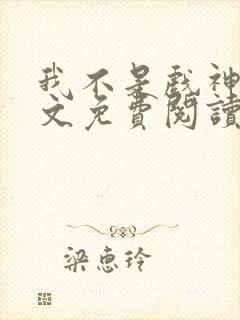 我不是戲神
文免費閱讀
梁惠玲